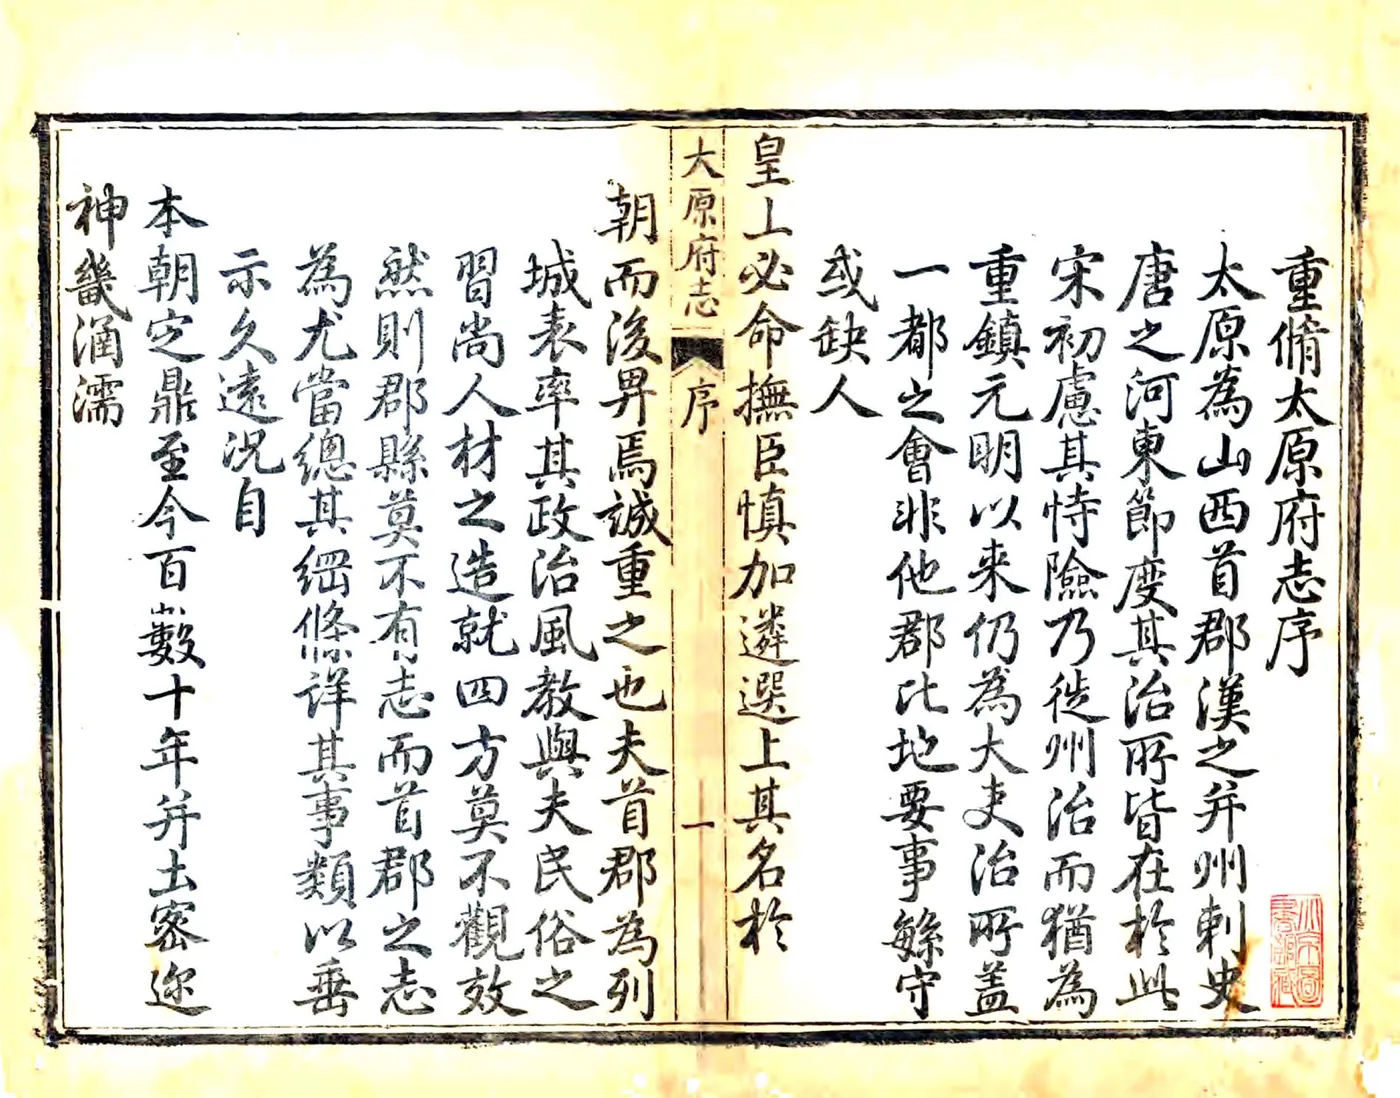 重脩太原府志序
太原為山西首郡漢之并州刺史
唐之河東節度其治所皆在於此
宋初慮其恃險乃徙州治而猶為
重鎮元明以来仍為大吏治所蓋
一都之會非他郡比地要事緐守
或缺人
皇上必命撫臣慎加遴選上其名於
大原府志
序
一
朝而後畀焉誠重之也夫首郡為列
城表率其政治風教與夫民俗之
習尚人材之造就四方莫不觀效
然則郡縣莫不有志而首郡之志
為尤當總其綱條詳其事類以垂
示久遠况自
本朝定鼎至今百數十年并土密迩
神畿涵濡